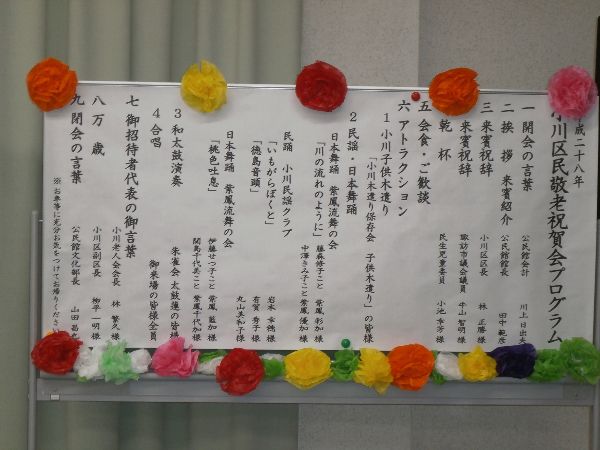 平成二十八年
小川区民敬老祝賀会プログラム
一 開会の言葉 公民館会計 川上 日出夫
二 挨拶 来賓紹介 公民館館長 田中 範彦
三 来賓祝辞 小川区区長 林 正勝様
来賓祝辞 諏訪市議会議員 牛山 智明様
乾杯 民生児童委員 小池 幸芳様
五 会食・ご歓談
六 アトラクション
1 小川子供木遣り
「小川木遣り保存会 子供木遣り」の皆様
2 民謡・日本舞踊
日本舞踊 紫鳳流舞の会
「川の流れのように」 藤森修子こと 紫鳳 彰加様
中澤きみ子こと 紫鳳 優加様
民踊 小川民謡クラブ
「いもがらぼくと」 岩本 幸穂様
「徳島音頭」 有賀 秀子様
丸山 美和子様
日本舞踊 紫鳳流舞の会
「桃色吐息」 伊藤せつ子こと 紫鳳 藍加様
関島千代美こと 紫鳳千代加様
3 和太鼓演奏 朱雀会 太鼓蓮の皆様
4 合唱 御来場の皆様全員
七 御招待者代表の御言葉
小川老人会会長 林 繁久様
八 万歳 小川区副区長 柳平 一明様
九 閉会の言葉 公民館文化部長 山田 昌
※お車等に充分お気をつけてお帰りください